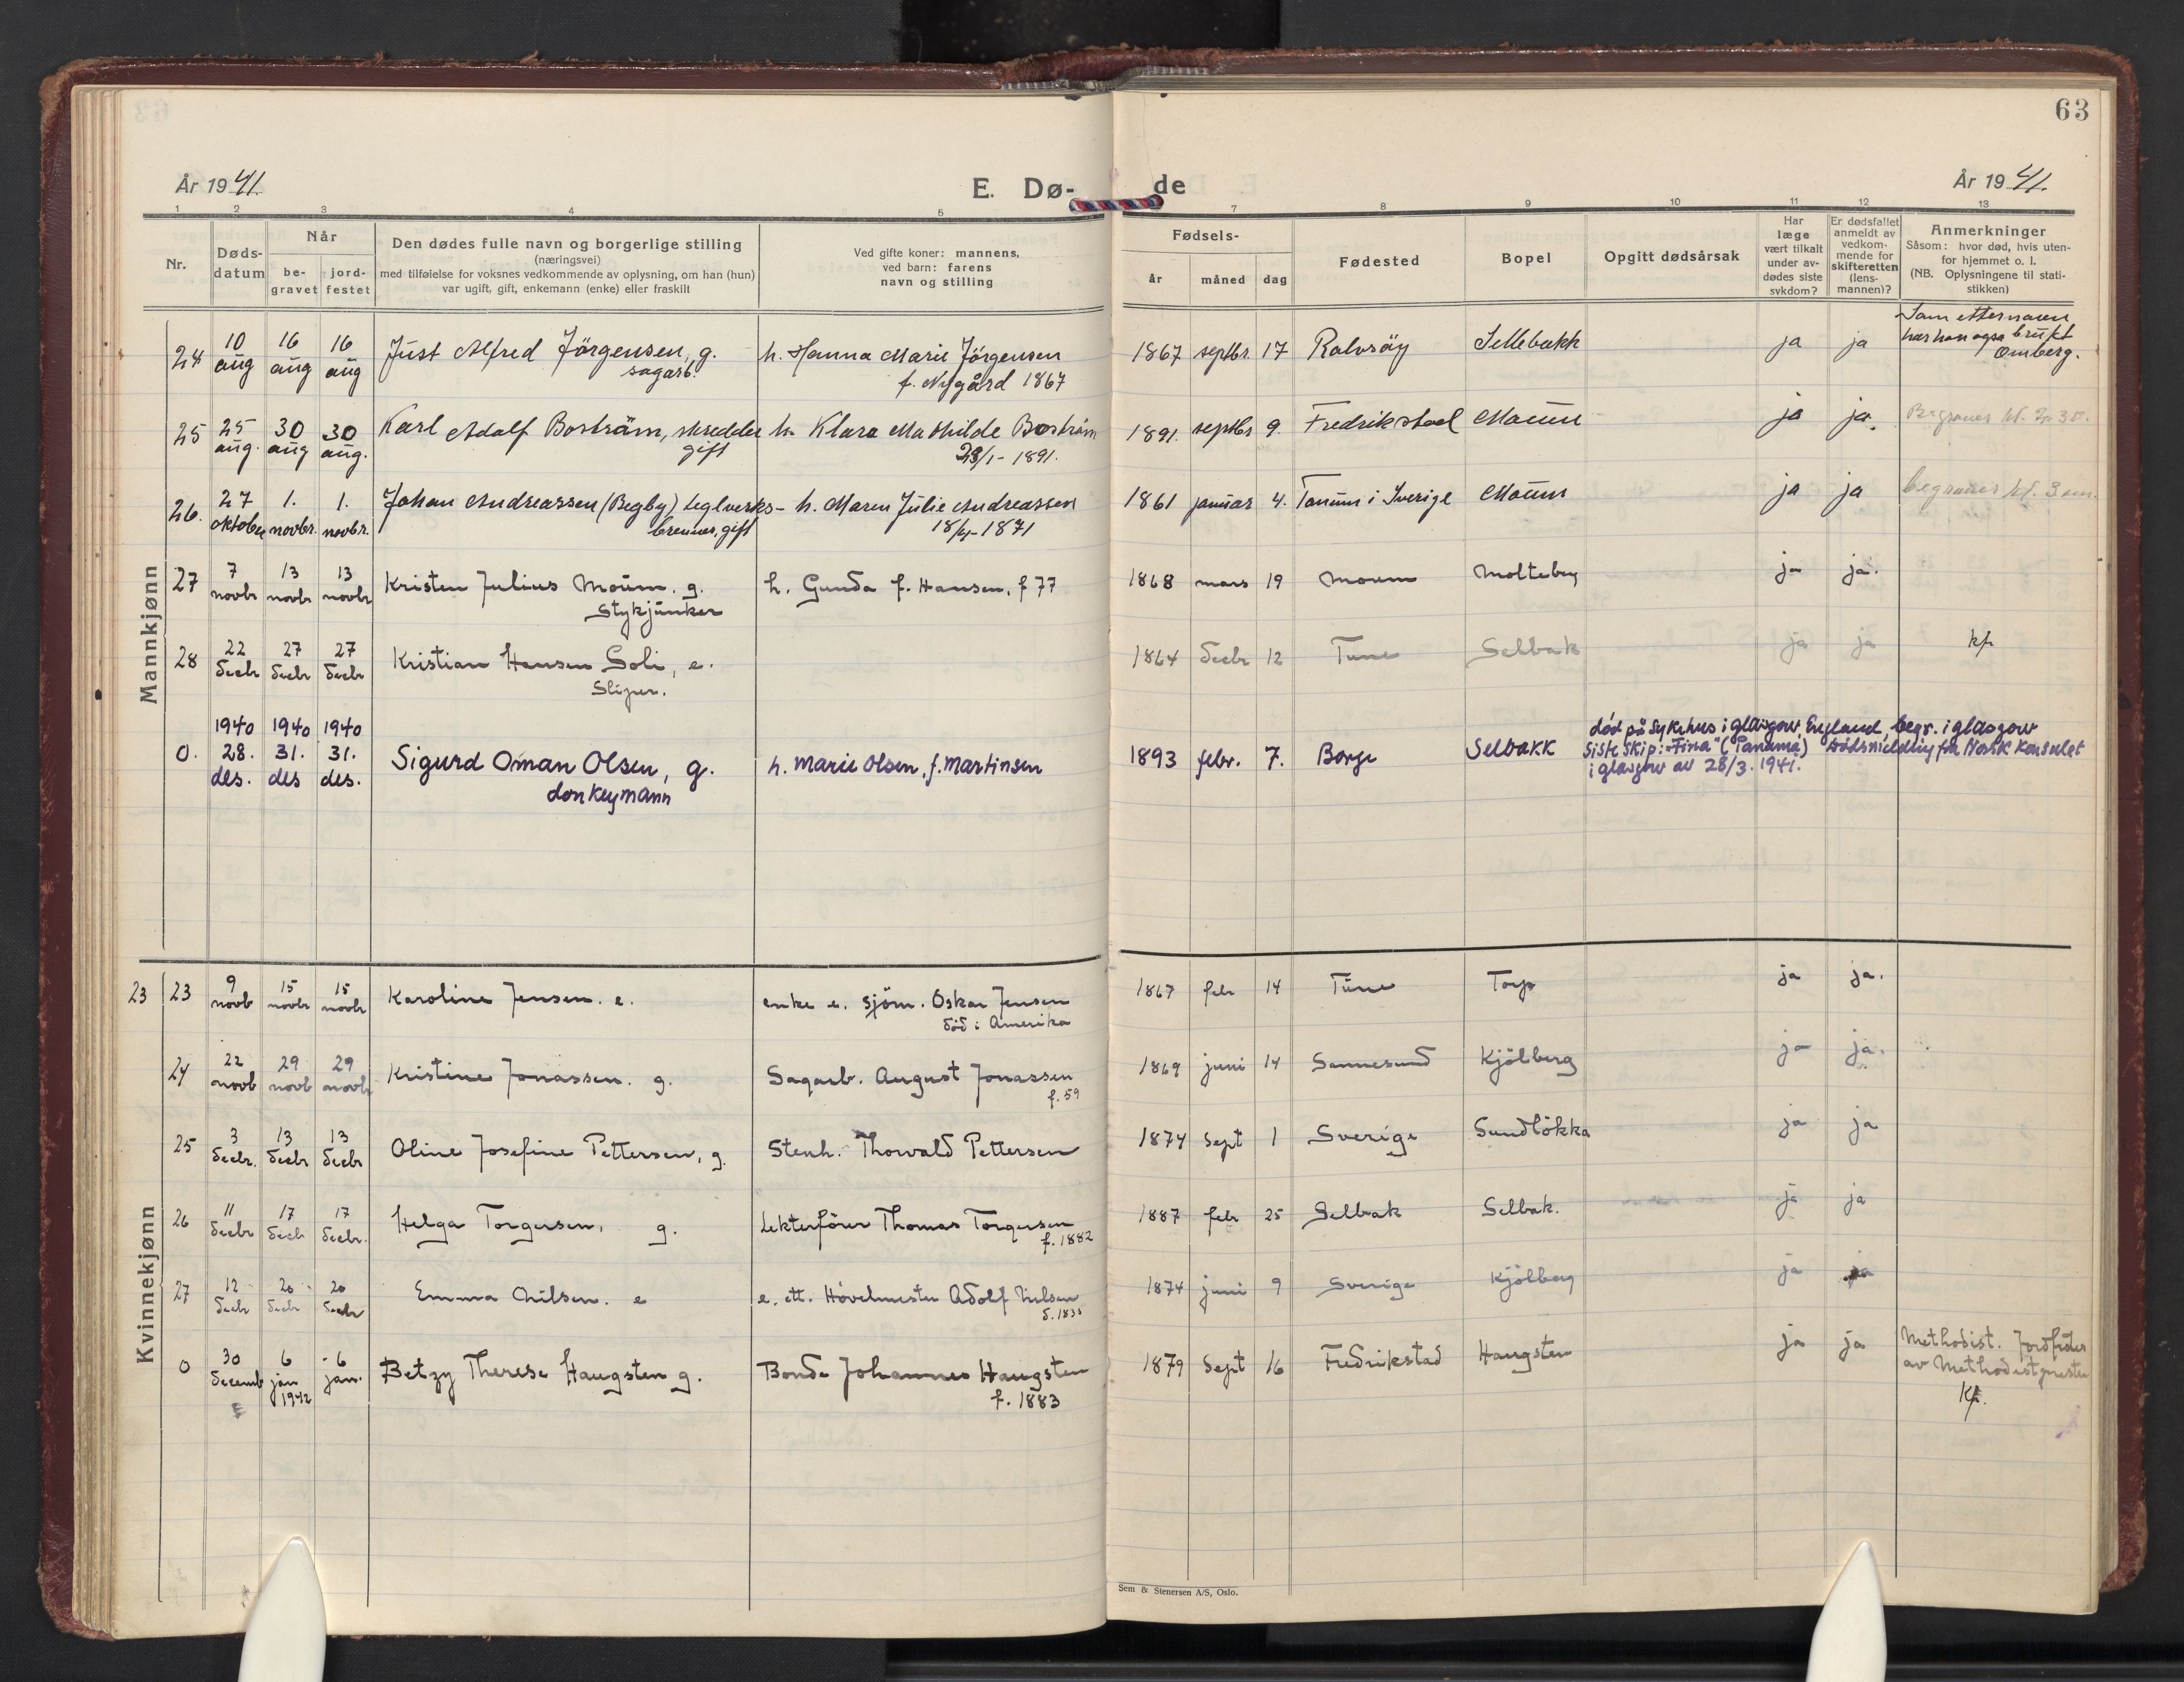 63
År 1941.
E. Dø-
de
År 1941.
1 2 3 4 5 7 8 9 10 11 12 13
Nr.
Døds-
datum
Når
be-
gravet
jord-
festet
Den dødes fulle navn og borgerlige stilling
(næringsvei)
med tilføielse for voksnes vedkommende av oplysning, om han (hun)
var ugift, gift, enkemann (enke) eller fraskilt
Ved gifte koner: mannens,
ved barn: farens
navn og stilling
Fødsels-
år
måned
dag
Fødested
Bopel
Opgitt dødsårsak
Har
læge
vært tilkalt
under av-
dødes siste
sykdom?
Er dødsfallet
anmeldt av
vedkom-
mende for
skifteretten
(lens-
mannen)?
Anmerkninger
Såsom: hvor død, hvis uten-
for hjemmet o. l.
(NB. Oplysningene til stati-
stikken)
Mannkjønn
24 10 aug 16 aug 16 aug Just Alfred Jörgensen, g. h. Hanna Marie Jörgensen 1867 septbr. 17 Rolvsöy Sellebakk ja ja Som etternavn
sagarb. f. Nygård 1867 har han også brukt
Omberg.
25 25 aug. 30 aug 30 aug. Karl Adolf Boström, skredder h. Klara Mathilde Boström 1891. septbr 9. Fredrikstad Moum ja ja. Begraves kl. 2.30.
gift 23/1- 1891.
26. 27 oktober 1. novbr. 1. novbr. Johan Andreassen (Begby) teglverks- h. Maren Julie Andreassen 1861 januar 4. Tanum i Sverige Moum ja ja begraves kl. 3 em.
brenner, gift 18/4-1871
27 7 novbr 13 novbr 13 novbr Kristen Julius Moum. g. h. Gunda f. Hansen, f 77 1868 mars 19 Moum Molteberg ja ja.
Stykjunker
28 22 decbr 27 decbr 27 decbr Kristian Hansen Soli, e. 1864 decbr 12 Tune Selbak ja ja kp
Sliper.
0. 1940 28. des. 1940 31. des 1940 31. des. Sigurd Oman Olsen, g. h. Marie Olsen, f. Martinsen 1893 febr. 7. Borge Selbakk død på Sykehus i glasgow, England, begr. i glasgow
donkeymann siste skip: "Fina" (Panama) Dødsmelding fra Norsk Konsulat
i glasgow av 28/3. 1941.
Kvinnekjønn
23 23 9 novb 15 novbr 15 novbr Karoline Jensen. e. enke e. sjöm. Oskar Jensen 1867 febr 14 Tune Torp ja ja.
död i Amerika
24 22 novb 29 novb 29 novb Kristine Jonassen. g. Sagarb. August Jonassen 1869 juni 14 Sannesund Kjölberg ja ja.
f. 59
25 3 decbr. 13 decbr 13 decbr Oline Josefine Pettersen, g. Stenh. Thorvald Pettersen 1874 Sept 1 Sverige Sundlökka ja ja
26 11 decbr 17 decbr 17 decbr. Helga Torgersen, g. Lekterförer Thomas Torgersen 1887 febr 25 Selbak Selbak. ja ja
f. 1882
27 12 decbr 20 decbr 20 decbr Emma Nilsen. e e. ett. Hövelmester Adolf Nilsen 1874 juni 9 Sverige Kjölberg ja ja
0 30 decemb 6 jan 1942 6 jan. Betzy Therese Haugsten g. Bonde Johannes Haugsten 1879 Sept 16 Fredrikstad Haugsten ja ja Methodist. Jordfestes
f. 1883 av Methodistpresten
Kp.
Sem & Stenersen A/S, Oslo.